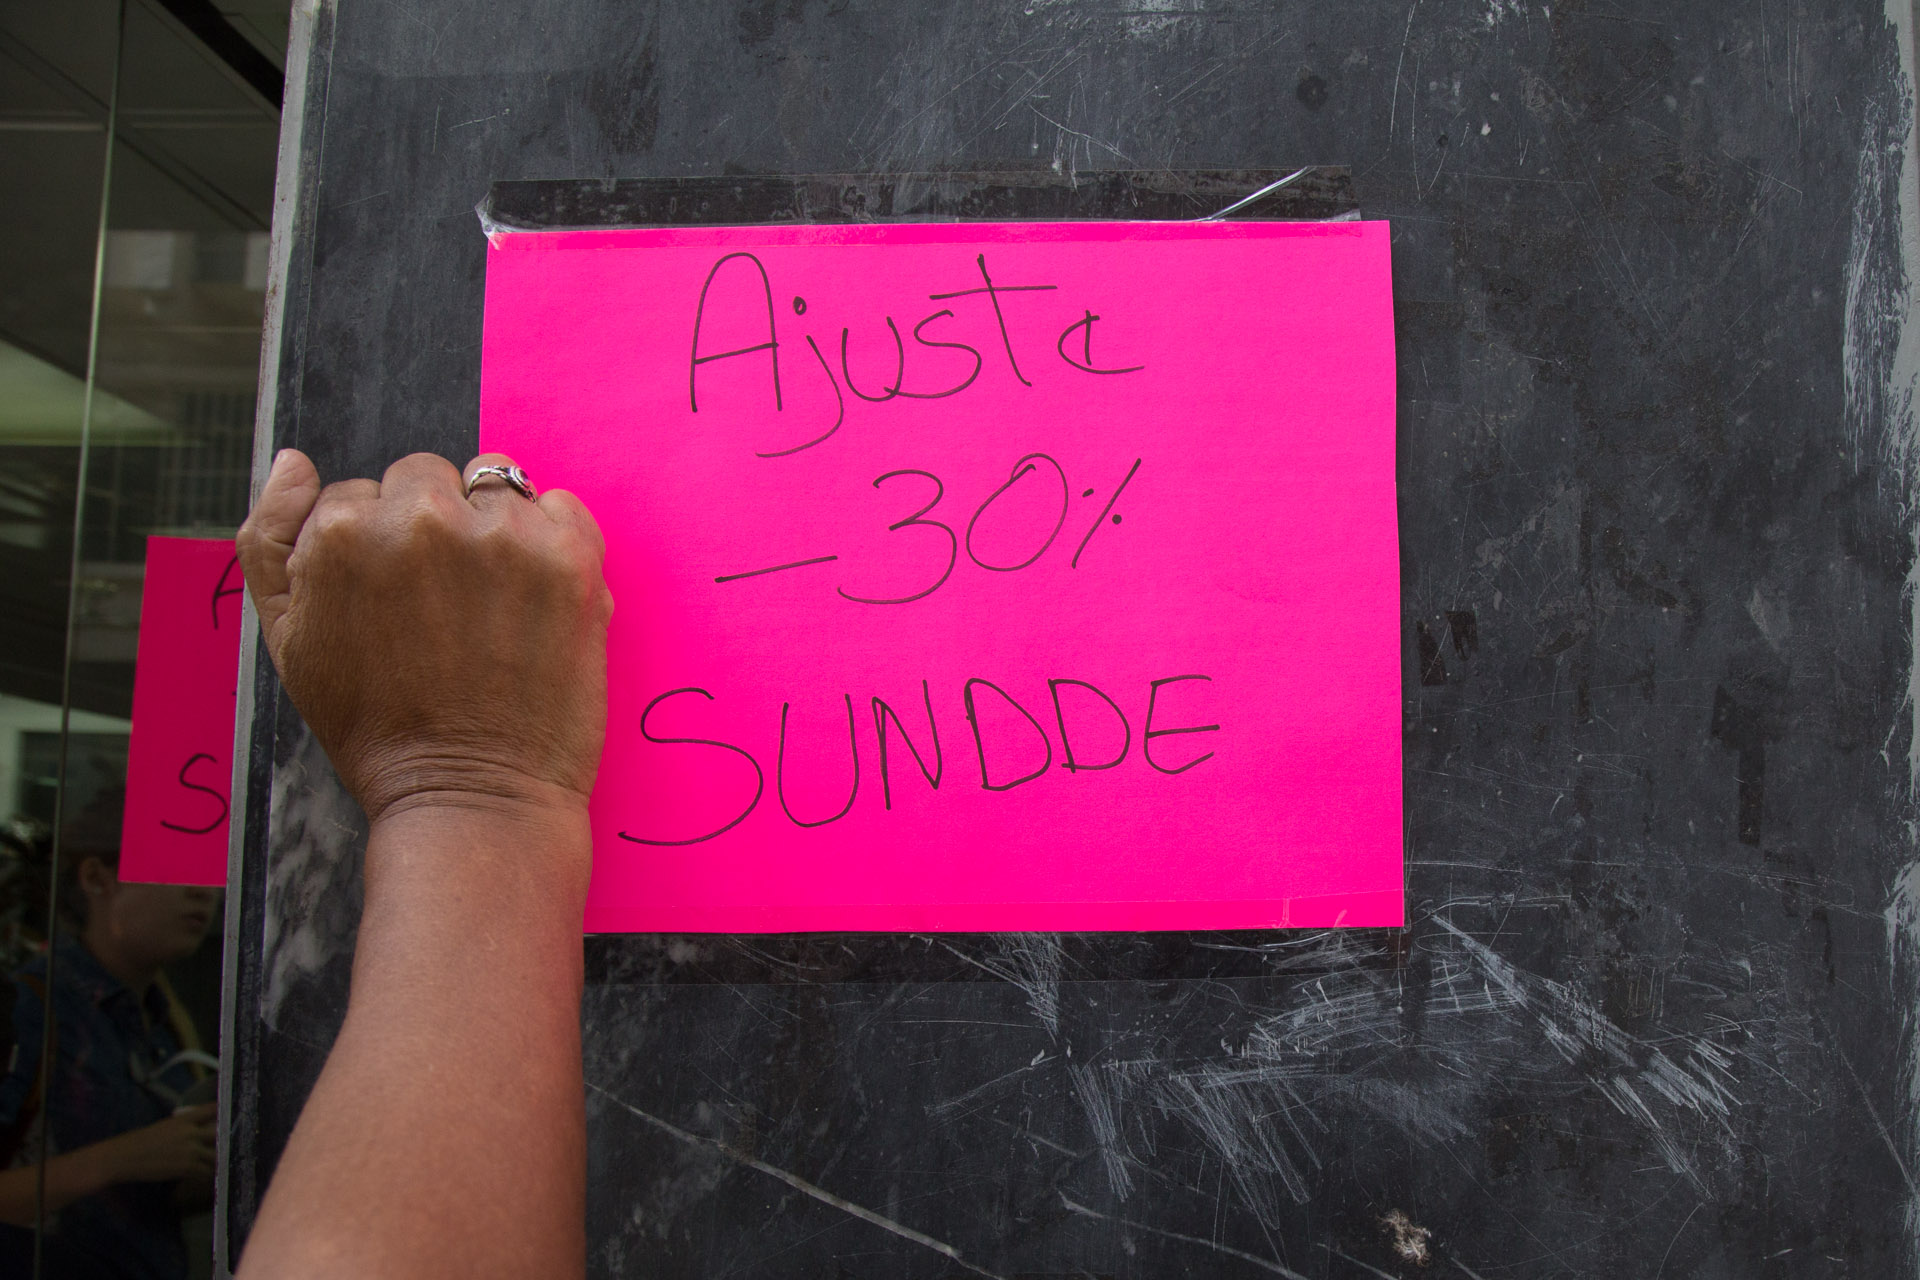 Ajuste
-30%
SUNDDE
A
S